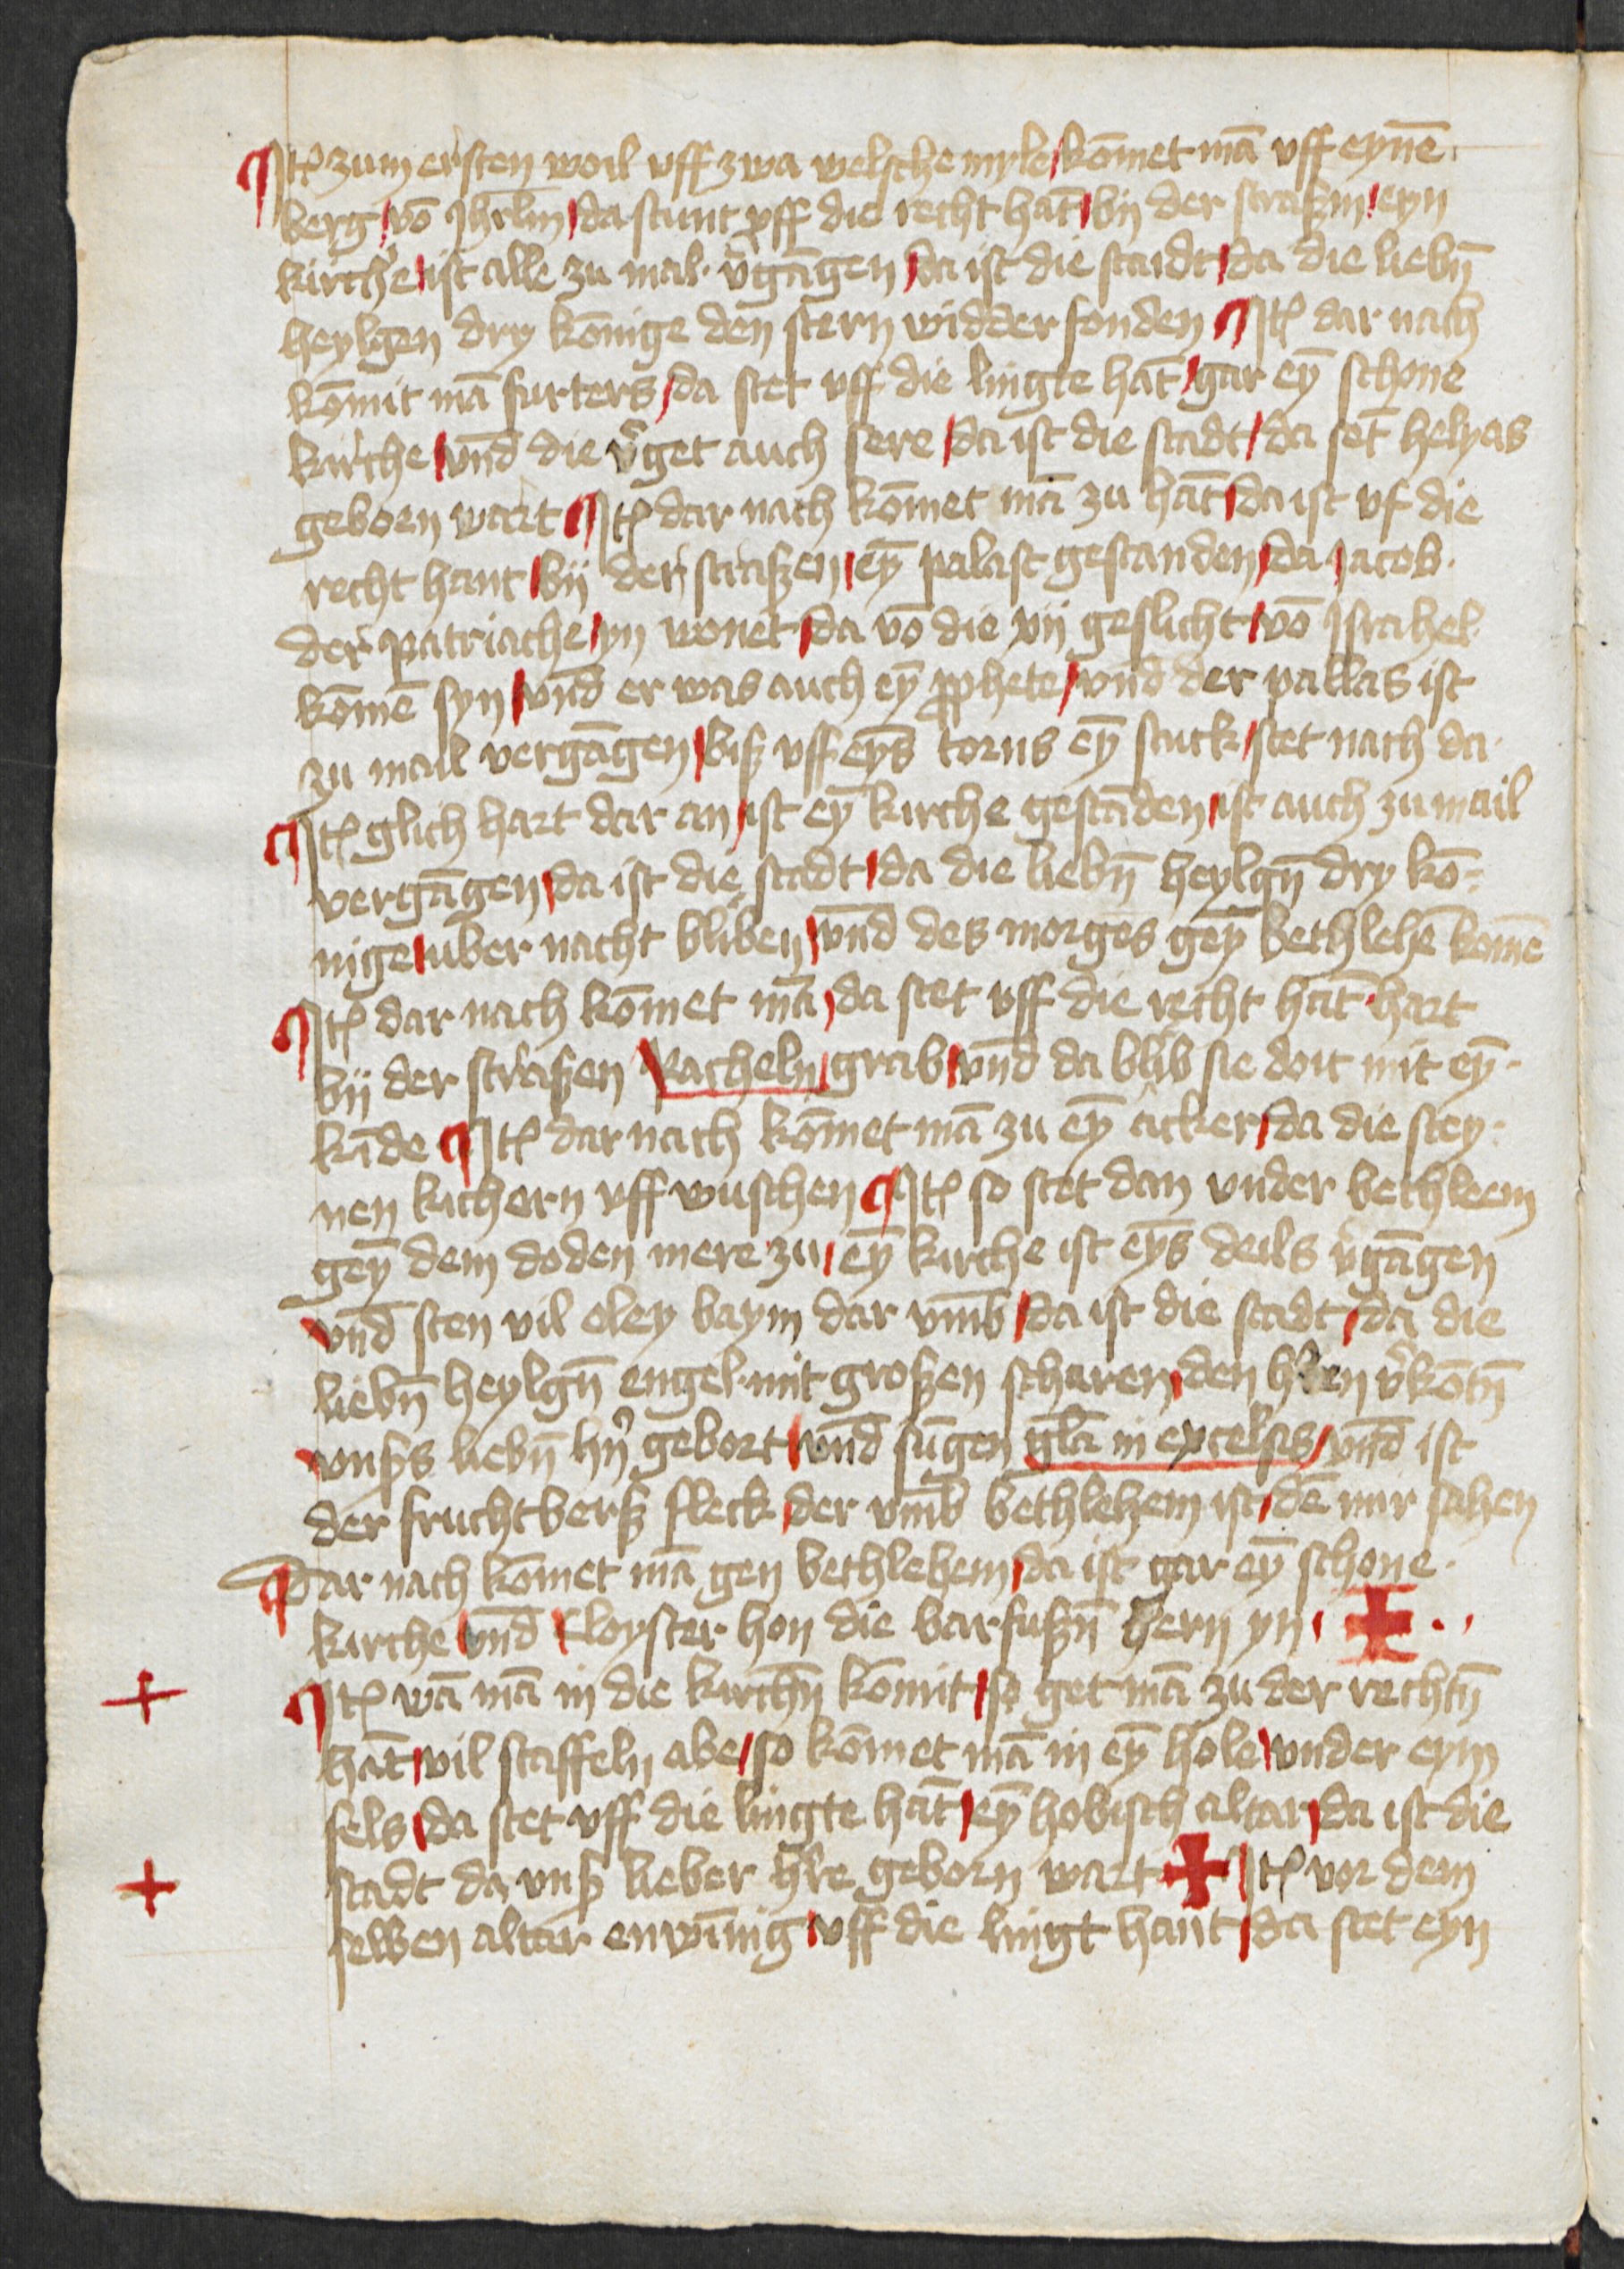 Itꝫ zum ersten woil vff zwa welsche myle / kōmet mā vff eynē
berg / vō Jhrl̄m / da stunt vff die recht hāt / bij der straßin / eyn
kirche / ist alle zu mal · v̓gāngen / da ist die staidt / da die liebn̄
heylgen dry kōnige den stern widder fonden Itꝫ dar nach
kōmit mā furters / da stet vff die lingte hāt / gar eȳ schone
kirche / vnd̄ die v̓get auch sere / da ist die stadt / da set̄ helyas
geboen wart Itꝫ dar nach kōmet mā zu hāt / da ist vf die
recht hant / bij der straßen / eȳ palast gestanden / da Jacob ·
der patriache / yn wonet / da vō die xij geslicht / vō Jsrahel
kōmē syn / vnd̄ er was auch eȳ ꝓphete / vnd̄ der pallas ist
zu mail vergāngen / biß vff eȳs torns eȳ stuck / stet nach da ·
Itꝫ glich hart dar an / ist eȳ kirche gestāden / ist auch zu mail
vergāngen / da ist die stadt / da die liebn̄ heylgn̄ dry kō-
nige / uber nacht bliben / vnd̄ des morgēs geȳ bethlehē komē
Itꝫ dar nach kōmet mā / da stet vff die recht hāt · hart
bij der straßen Racheln / grab / vnd̄ da blib sie doit mit eȳ ·
kīde Itꝫ dar nach kōmet mā zu eȳ acker / da die stey-
nen kichern vff wuschen Itꝫ so stet dan vnder bethleem
geȳ dem doden mere zu / eȳ kirche ist eȳs deils v̓gāngen
vnd̄ sten vil oley baym dar vmb̄ / da ist die stadt / da die
liebn̄ heylgn̄ engel · mit großen scharen / den hirten v̓kōtn̄
vnßs liebn̄ hn̓ gebort / vnd̄ sūgen gl̄a in excelsis / vnd̄ ist
der fruchtberß fleck / der vmb̄ bethlehem ist / dē mir sahen
Dar nach kōmet mā gen bethlehem / da ist gar eȳ schone ·
kirche / vnd̄ Cloyster hon die barfußn̄ hern yn · ✠ · ·
+ Itꝫ wā mā in die kirchn̄ kōmit / so get mā zu der rechtn̄
hāt / vil staffeln abe / so kōmet mā in eȳ hole / vnder eym
fels / da stet vff die lingte hāt / eȳ hobisch altar / da ist die
+ stadt da vnß lieber hr̄e geborn wart ✠ Itꝫ vor dem
selben altar enwīnig / vff die lingt hant / da stet eyn